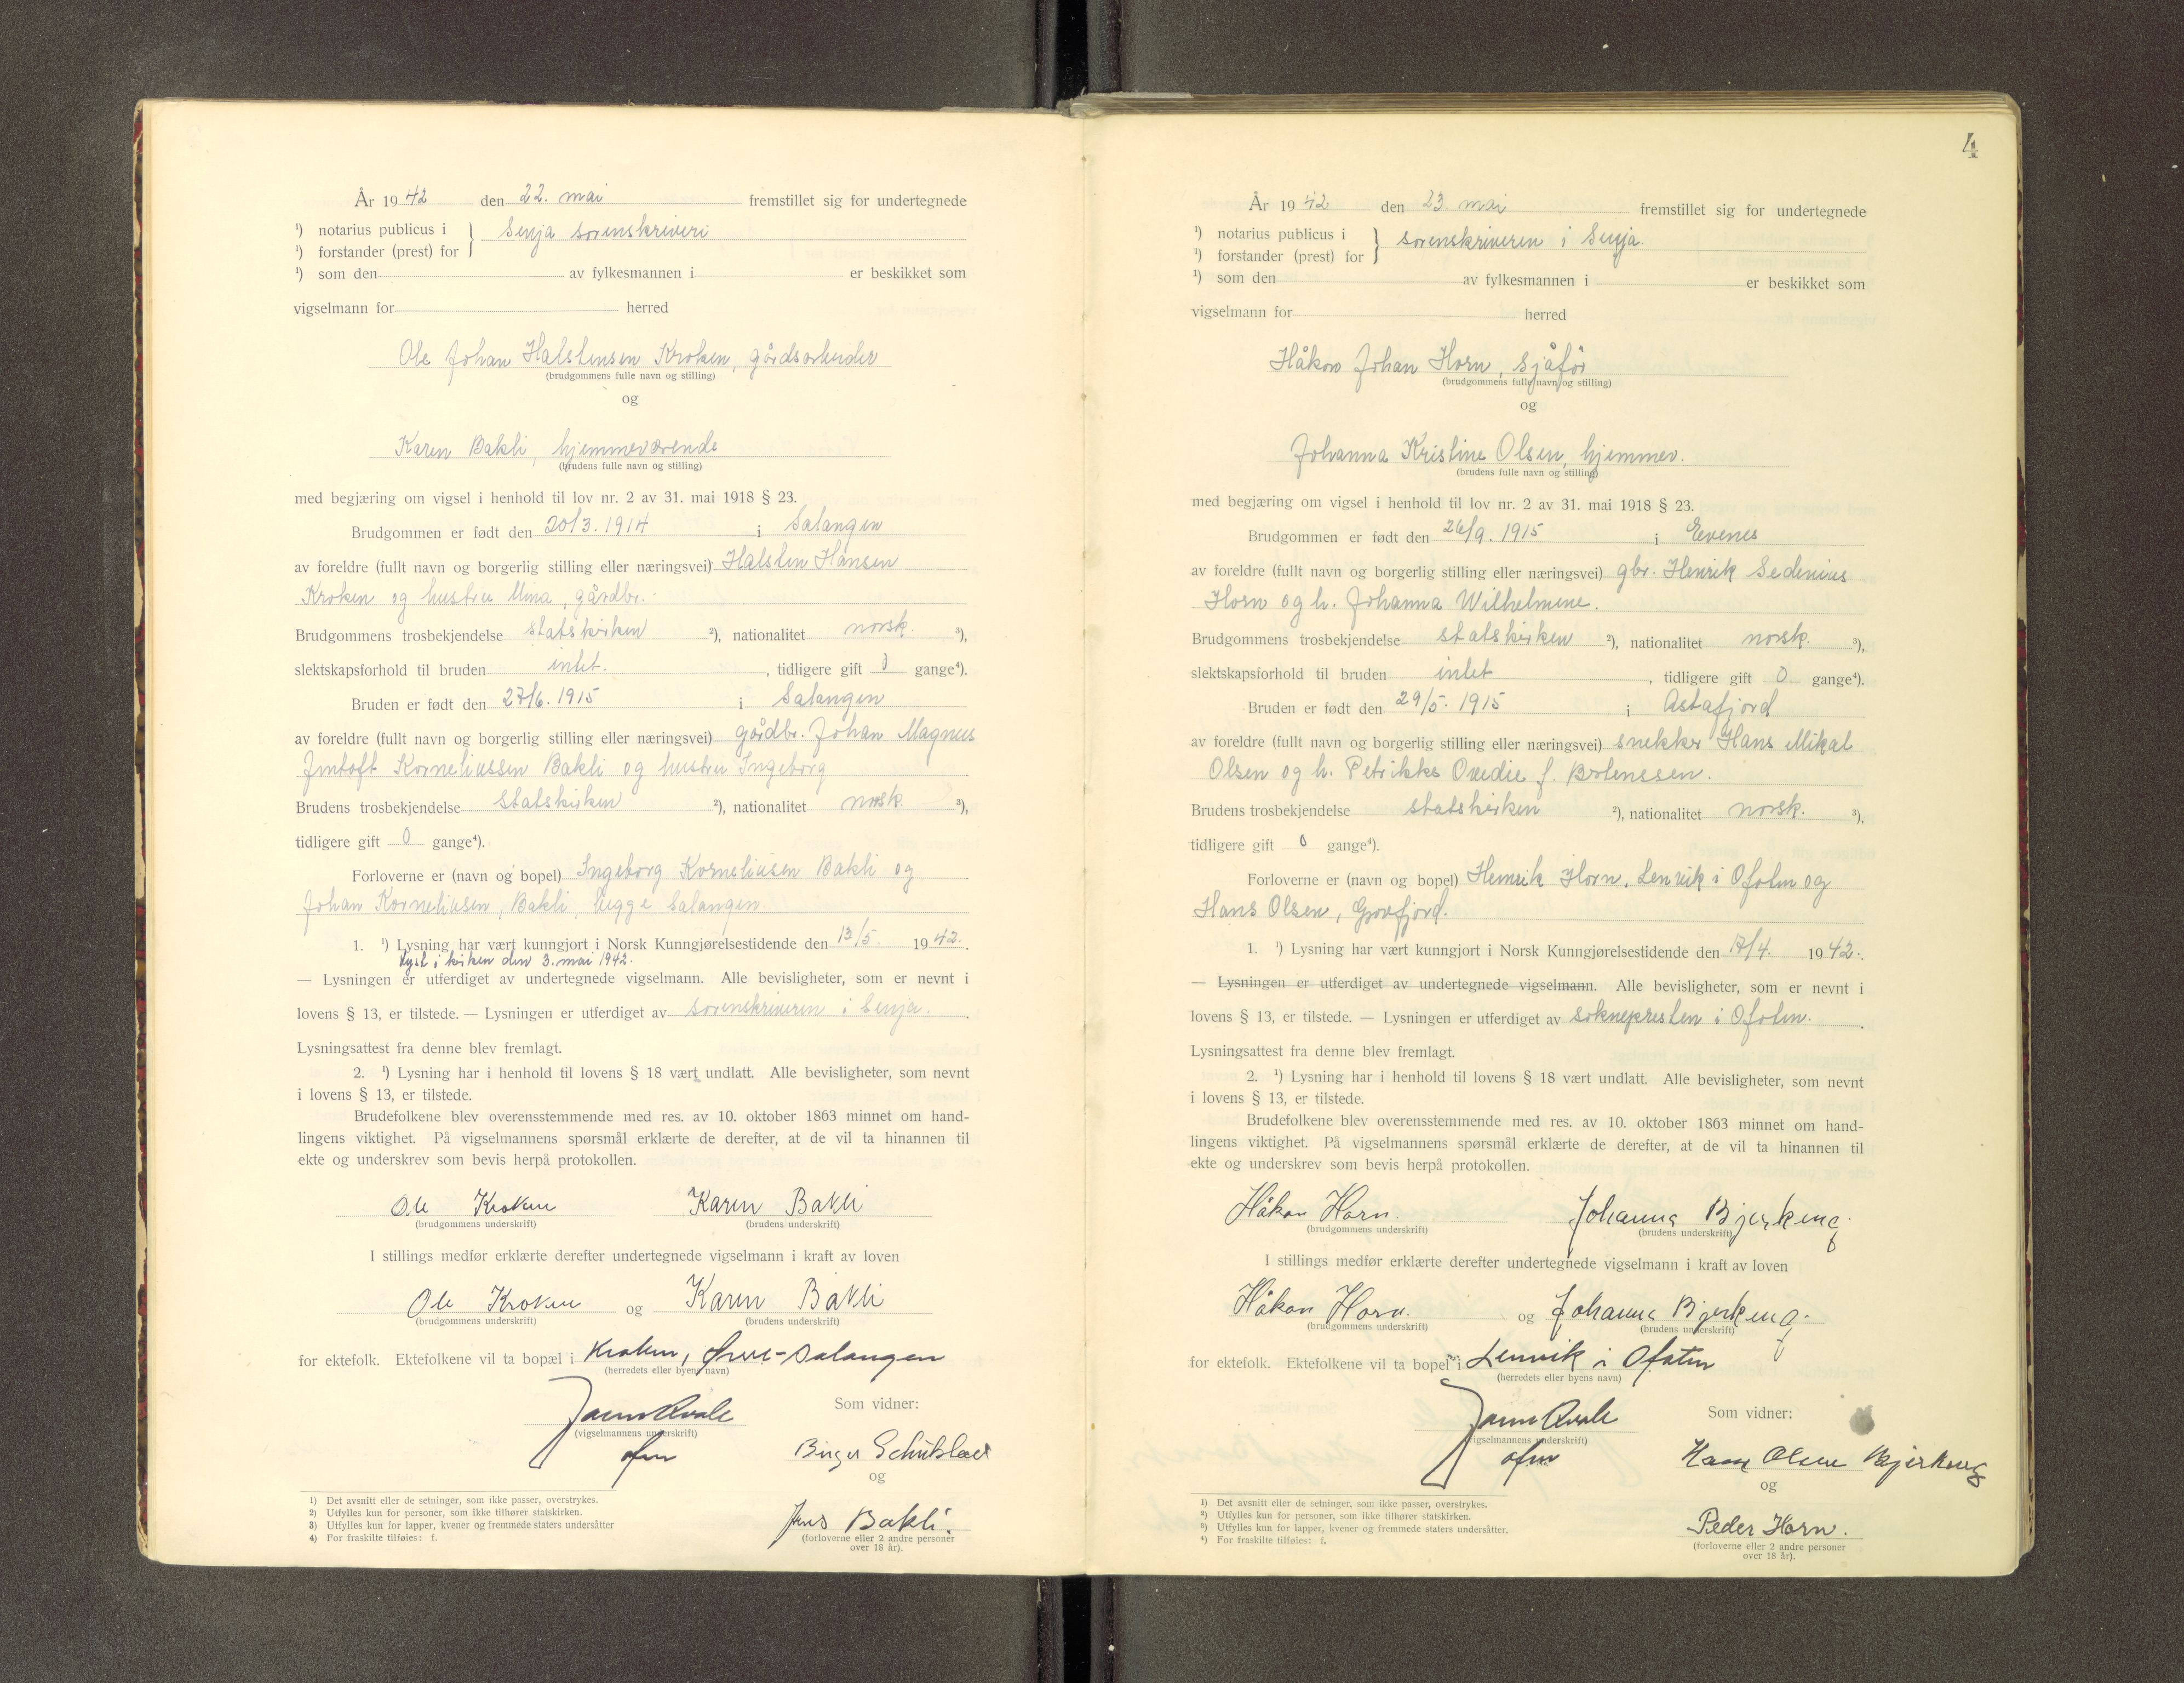 År 1942 den 22. mai fremstillet sig for undertegnede
¹) notarius publicus i } Senja sorenskriveri
¹) forstander (prest) for
¹) som den av fylkesmannen i er beskikket som
vigselmann for herred
Ole Johan Halstensen Kroken, gårdsarbeider
(brudgommens fulle navn og stilling)
og
Karen Bakli, hjemmeværende
(brudens fulle navn og stilling)
med begjæring om vigsel i henhold til lov nr. 2 av 31. mai 1918 § 23.
Brudgommen er født den 20/3. 1914 i Salangen
av foreldre (fullt navn og borgerlig stilling eller næringsvei) Halsten Hansen
Kroken og hustru Mina, gårdbr.
Brudgommens trosbekjendelse statskirken ²), nationalitet norsk. ³),
slektskapsforhold til bruden intet. , tidligere gift 0 gange⁴).
Bruden er født den 27/6. 1915 i Salangen
av foreldre (fullt navn og borgerlig stilling eller næringsvei) gårdbr. Johan Magnus
Korneliussen Bakli og hustru Ingeborg
Brudens trosbekjendelse statskirken ²), nationalitet norsk. ³),
tidligere gift 0 gange⁴).
Forloverne er (navn og bopel) Ingeborg Korneliusen Bakli og
Johan Korneliusen, Bakli, Segge Salangen.
1. ¹) Lysning har vært kunngjort i Norsk Kunngjørelsestidende den 13/5. 1942.
Lyst i kirken den 3. mai 1942.
— Lysningen er utferdiget av undertegnede vigselmann. Alle bevisligheter, som er nevnt i
lovens § 13, er tilstede. — Lysningen er utferdiget av sorenskriveren i Senja.
Lysningsattest fra denne blev fremlagt.
2. ¹) Lysning har i henhold til lovens § 18 vært undlatt. Alle bevisligheter, som nevnt
i lovens § 13, er tilstede.
Brudefolkene blev overensstemmende med res. av 10. oktober 1863 minnet om hand-
lingens viktighet. På vigselmannens spørsmål erklærte de derefter, at de vil ta hinannen til
ekte og underskrev som bevis herpå protokollen.
Ole Kroken Karen Bakli
(brudgommens underskrift) (brudens underskrift)
I stillings medfør erklærte derefter undertegnede vigselmann i kraft av loven
Ole Kroken og Karen Bakli
(brudgommens underskrift) (brudens underskrift)
for ektefolk. Ektefolkene vil ta bopæl i Kroken, Øvre-Salangen
(herredets eller byens navn)
Som vidner:
(vigselmannens underskrift)
Birger
og
Jens Bakli.
(forloverne eller 2 andre personer
over 18 år).
1) Det avsnitt eller de setninger, som ikke passer, overstrykes.
2) Utfylles kun for personer, som ikke tilhører statskirken.
3) Utfylles kun for lapper, kvener og fremmede staters undersåtter
4) For fraskilte tilføies: f.
4
År 1942 den 23. mai fremstillet sig for undertegnede
¹) notarius publicus i } sorenskriveren i Senja.
¹) forstander (prest) for
¹) som den av fylkesmannen i er beskikket som
vigselmann for herred
Håkon Johan Horn, sjåfør
(brudgommens fulle navn og stilling)
og
Johanna Kristine Olsen, hjemmev.
(brudens fulle navn og stilling)
med begjæring om vigsel i henhold til lov nr. 2 av 31. mai 1918 § 23.
Brudgommen er født den 26/9. 1915 i Evenes
av foreldre (fullt navn og borgerlig stilling eller næringsvei) gbr. Henrik Sedenius
Horn og h. Johanna Wilhelmine.
Brudgommens trosbekjendelse statskirken ²), nationalitet norsk. ³),
slektskapsforhold til bruden intet , tidligere gift 0 gange⁴).
Bruden er født den 29/5. 1915 i Astafjord
av foreldre (fullt navn og borgerlig stilling eller næringsvei) snekker Hans Mikal
Olsen og h. Petrikke Ovedie f.
Brudens trosbekjendelse statskirken ²), nationalitet norsk. ³),
tidligere gift 0 gange⁴).
Forloverne er (navn og bopel) Henrik Horn, Lenvik i Ofoten og
Hans Olsen, Grovfjord.
1. ¹) Lysning har vært kunngjort i Norsk Kunngjørelsestidende den 17/4. 1942.
— Lysningen er utferdiget av undertegnede vigselmann. Alle bevisligheter, som er nevnt i
lovens § 13, er tilstede. — Lysningen er utferdiget av soknepresten i Ofoten.
Lysningsattest fra denne blev fremlagt.
2. ¹) Lysning har i henhold til lovens § 18 vært undlatt. Alle bevisligheter, som nevnt
i lovens § 13, er tilstede.
Brudefolkene blev overensstemmende med res. av 10. oktober 1863 minnet om hand-
lingens viktighet. På vigselmannens spørsmål erklærte de derefter, at de vil ta hinannen til
ekte og underskrev som bevis herpå protokollen.
Håkon Horn. Johanna Bjerkeng.
(brudgommens underskrift) (brudens underskrift)
I stillings medfør erklærte derefter undertegnede vigselmann i kraft av loven
Håkon Horn. og Johanna Bjerkeng.
(brudgommens underskrift) (brudens underskrift)
for ektefolk. Ektefolkene vil ta bopel i Lenvik i Ofoten
(herredets eller byens navn)
Som vidner:
(vigselmannens underskrift)
Hans Olsen Bjerkeng
og
Peder Horn.
(forloverne eller 2 andre personer
over 18 år).
¹) Det avsnitt eller de setninger, som ikke passer, overstrykes.
²) Utfylles kun for personer, som ikke tilhører statskirken.
³) Utfylles kun for lapper, kvener og fremmede staters undersåtter.
⁴) For fraskilte tilføies: f.